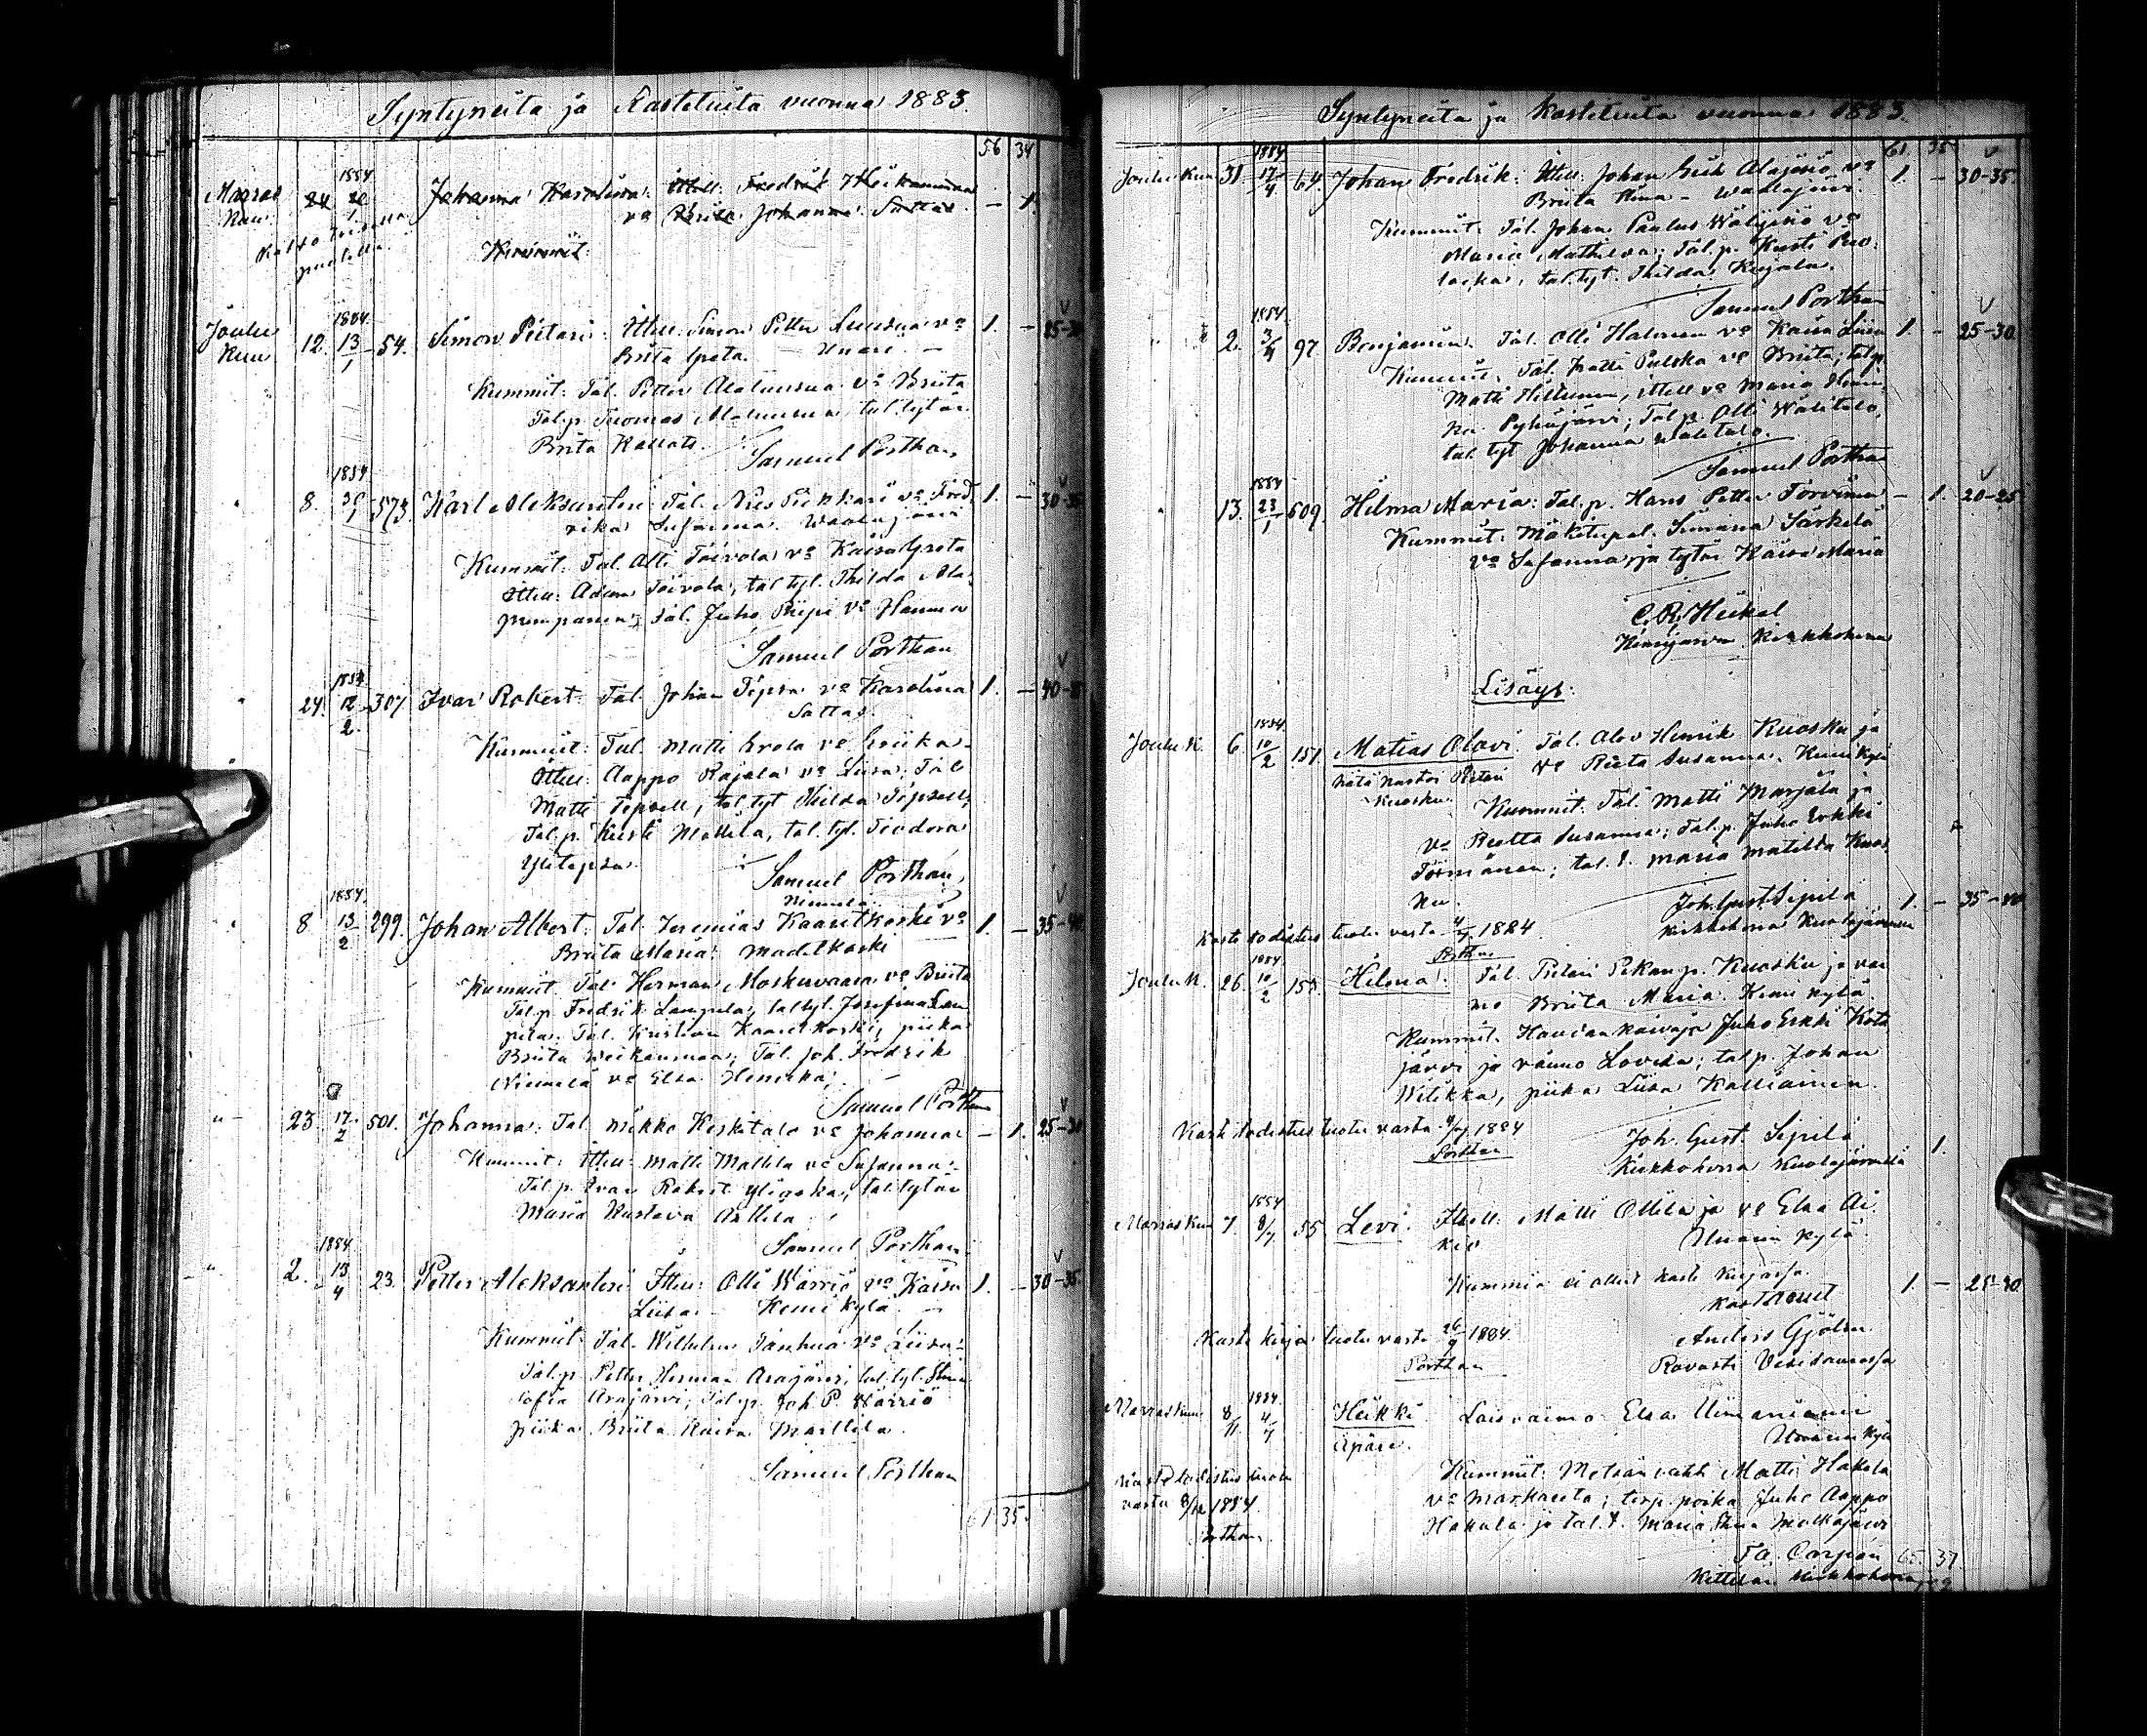 Syntyneitä ja Kastetuita vuonna 1883.
56 34
1884
Marras Kuu 24 20/1 Johanna Karolina: Ittell. Fredrik Heikanmaa
vo Briita Johanna Sattas. — 1.
Katso toisella puolella
Kummit:
1884.
Joulu Kuu 12. 13/1 54. Simon Pietari: Ittell. Simon Petter Luusua vo 1. — 25-30
Brita Greta. — Unari. —
Kummit: Tal. Petter Alaluusua vo Briita
Tal.p. Tuomas Alaluusua, tal. tytär
Brita Kallatt.
Samuel Porthan
1884
8. 573. Karl Aleksanteri: Tal. Nies Pikkari vo Fred- 1. — 30-35
rika Susanna. Waalajärvi
Kummit: Tal. Olli Toivola vo Kaisa Greta
Ittell. Adam Toivola, tal. tyt. Thilda Ala-
pumpanen; Tal. Juho Piipi vo Hanna
Samuel Porthan
1884
24. 12/2 307. Ivar Robert: Tal. Johan Tepsa vo Karolina 1. — 40-
Sattas.
Kummit: Tal. Matti vo
Ittell. Aappo Rajala vo Liisa; Tal.
Matti Tepsell, tal. tyt. Thilda Tepsell,
Tal.p. Kusti Mattila, tal. tyt. Teodora
Ylitepsa.
Samuel Porthan
1884.
8 13/2 299. Johan Albert: Tal. Jeremias Kaaretkoski vo 1. — 35-40
Briita Maria. Madetkoski
Kummit: Tal. Herman Moskuvaara vo Briita
Tal.p. Fredrik Lampela, tal. tyt. Josefina Lam
pela. Tal. Kristian Kaaretkoski, piika
Briita Weikanmaa; Tal. Joh. Fredrik
Niemelä vo Elsa Henrika.
Samuel Porthan
" 23. 17/2 501. Johanna: Tal. Mikko Keskitalo vo Johanna — 1. 25-30
Kummit: Ittell. Matti Mattila vo Susanna.
Tal.p. Ivar Robert, tal. tytär
Maria Kustava Anttila
Samuel Porthan
1884.
" 2. 13/4 23. Petter Aleksanteri: Ittell. Olli Wärriö vo Kaisa 1. — 30-35.
Liisa. — Kemi kylä. —
Kummit: Tal. Wilhelm Tanhua vo Liisa.
Tal.p. Petter Herman Arajärvi, tal. tyt. Stina
Sofia Arajärvi; Tal.p. Joh. P. Wärriö
piika Briita Kaisa Marttila.
Samuel Porthan
61 35.
Syntyneitä ja Kastetuita vuonna 1883.
61. 35
1884
Joulu Kuu 31. 17/4 64. Johan Fredrik: Ittell. Johan Erik Alajärvi vo 1. — 30-35.
Briita Stina — Waalajärvi.
Kummit: Tal. Johan Paulus Wälijärvi vo
Maria Mathilda; Tal.p. Kusti Puo-
lakka, tal. tyt. Thilda Kujala.
Samuel Porthan
1884.
2. 3/4 97. Benjamin: Tal. Olli Halonen vo Kaisa Liisa 1. — 25-30
Kummit: Tal. Matti Pulska vo Briita; tal.p.
Matti Hiltunen, Ittell. vo Maria
Pyhäjärvi; Tal.p. Olli Wälitalo,
tal. tyt. Johanna Wälitalo.
Samuel Porthan
1884
13. 23/1 609. Hilma Maria: Tal.p. Hans Petter Torvinen — 1. 20-25
Kummit: Mäkitupal. Simana Särkelä
vo Susanna, ja tytär Kaisa Maria
C. R. Heikel
Kemijärven Kirkkoherra
Lisäys:
1884
Joulu K. 6. 10/2 151. Matias Olavi: Tal. Olov Henrik Kuosku ja
Hätä kastoi Pietari Kuosku. vo Rieta Susanna. Kemi kylä
Kummit: Tal. Matti Marjala ja
vo Reetta Susanna; Tal.p. Juho Erkki
Törmänen; tal. t. Maria Matilda Kuos
ku.
Joh. Gust. Sipilä 1. — 35-40
Kirkkoherra Kuolajärvellä
Kaste todistus tuotu vasta 4/7 1884
Porthan
1884.
Joulu K. 26. 10/2 153. Helena: Tal. Pietari Pekan p. Kuosku ja vai
mo Briita Maria. Kemi kylä
Kummit: Haudan kaivaja Juho Erkki Kota
järvi ja vaimo Lovisa; tal.p. Johan
Wilikka, piika Liisa Kalliainen.
Kaste todistus tuotu vasta 4/7 1884
Porthan
Joh. Gust. Sipilä
Kirkkoherra Kuolajärvellä 1.
1884
Marras Kuu 7. 8/7 55 Levi: Ittell. Matti Ollila ja vo Elsa Ai
kio Unarin kylä.
Kummia ei ollut kaste kirjassa.
Kastanut 1. — 25-30.
Anders Gjölm.
Rovasti Vesisaaressa
Kaste kirja tuotu vasta 26/9 1884.
Porthan
1884.
Marraskuu 8/11 4/7 Heikki Loisvaimo Elsa Uimaniemi
Äpärä. Unarin kylä
Kummit: Metsän vahti Matti Hakala
vo Markareeta; torp. poika Juho Aappo
Hakala ja tal. t. Maria Stina Molkojärvi
Kaste todistus tuotu
vasta 8/12 1884.
Porthan
65. 37
Kittilän kirkkoherra